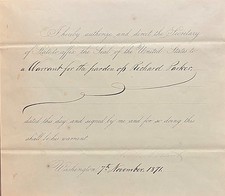 I hereby authorize and direct the Secretary
of State to affix the Seal of the United States to
a Warrant for the pardon of Richard Parker,
dated this day and signed by me and for so doing this
shall be his warrant.
Washington 7th November, 1871.